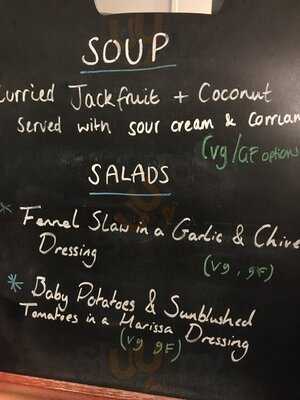 SOUP
Curried Jackfruit + Coconut
served with sour cream &
(vg/GF option
SALADS
Fennel Slaw in a Garlic & Chive
Dressing
(vg, gf)
* Baby Potatoes & Sunblushed
Tomatoes in a Harissa Dressing
(vg gf)